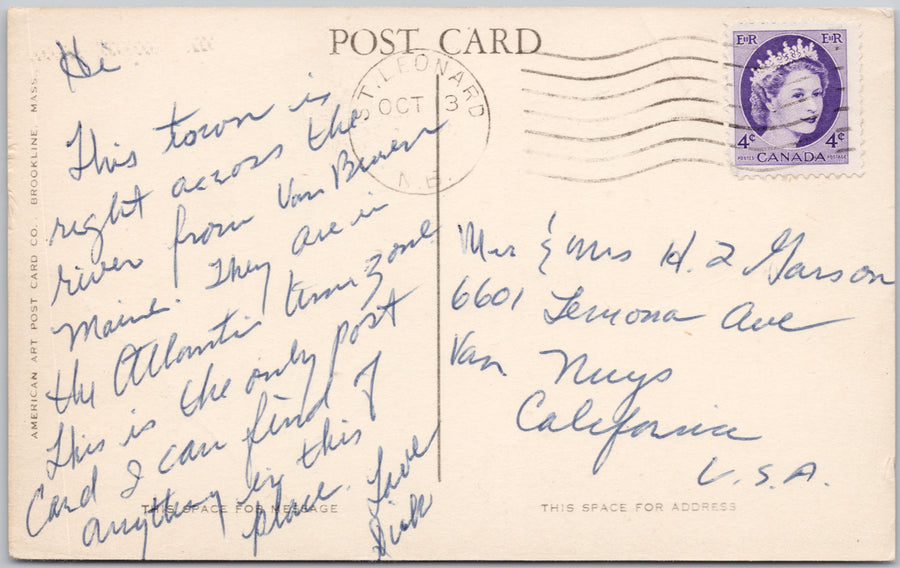 POST CARD
Hi
This town is
right across the
river from Van Buren
Maine. They are in
the Atlantic time zone
This is the only post
Card I can find of
anything in this
place. Love
Dick
THIS SPACE FOR MESSAGE
AMERICAN ART POST CARD CO., BROOKLINE, MASS.
ST. LEONARD
OCT 3
N.B.
EIIR EIIR
4¢ 4¢
POSTES CANADA POSTAGE
Mr & Mrs H. L Garson
6601 Lemona Ave
Van Nuys
California
U.S.A.
THIS SPACE FOR ADDRESS